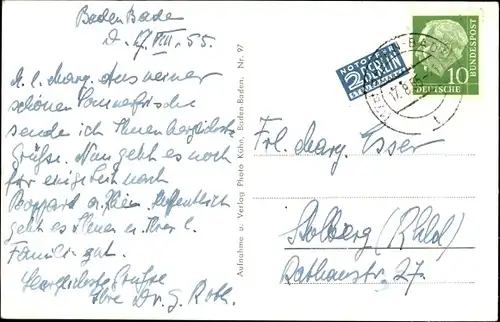 Baden Bade
D. 17. VIII. 55.
M. l. Marg. Aus meiner
schönen Sommerfrische
sende ich Ihnen herzlichste
Grüße. Nun geht es noch
für einige Zeit nach
Boppard a. Rhein. Hoffentlich
geht es Ihnen u. Ihrer l.
Familie gut.
Herzlichste Grüße
Ihre Dr. G. Roth.
Aufnahme u. Verlag Photo Kühn, Baden-Baden. Nr. 97
NOTOPFER
2 BERLIN
STEUERMARKE
BADEN-BADEN
17.8.55
t
DEUTSCHE BUNDESPOST
10
Frl. Marg. Esser
Stolberg (Rhld)
Rathausstr. 27.